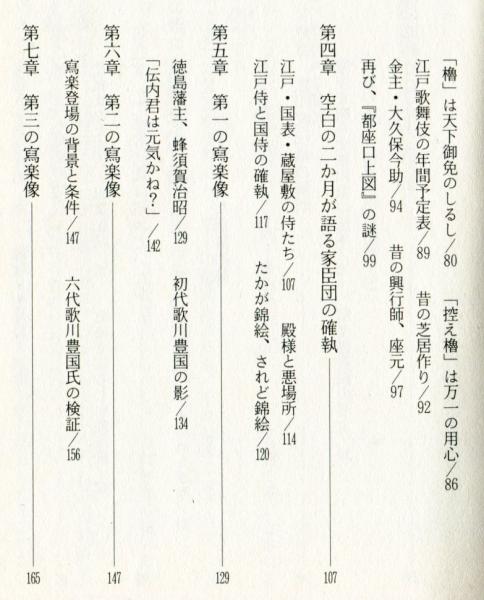 「櫓」は天下御免のしるし／80　「控え櫓」は万一の用心／86
江戸歌舞伎の年間予定表／89　昔の芝居作り／92
金主・大久保今助／94　昔の興行師、座元／97
再び、『都座口上図』の謎／99
第四章　空白の二か月が語る家臣団の確執――107
江戸・国表・蔵屋敷の侍たち／107　殿様と悪場所／114
江戸侍と国侍の確執／117　たかが錦絵、されど錦絵／120
第五章　第一の寫楽像――129
徳島藩主、蜂須賀治昭／129　初代歌川豊国の影／134
「伝内君は元気かね？」／142
第六章　第二の寫楽像――147
寫楽登場の背景と条件／147　六代歌川豊国氏の検証／156
第七章　第三の寫楽像――165